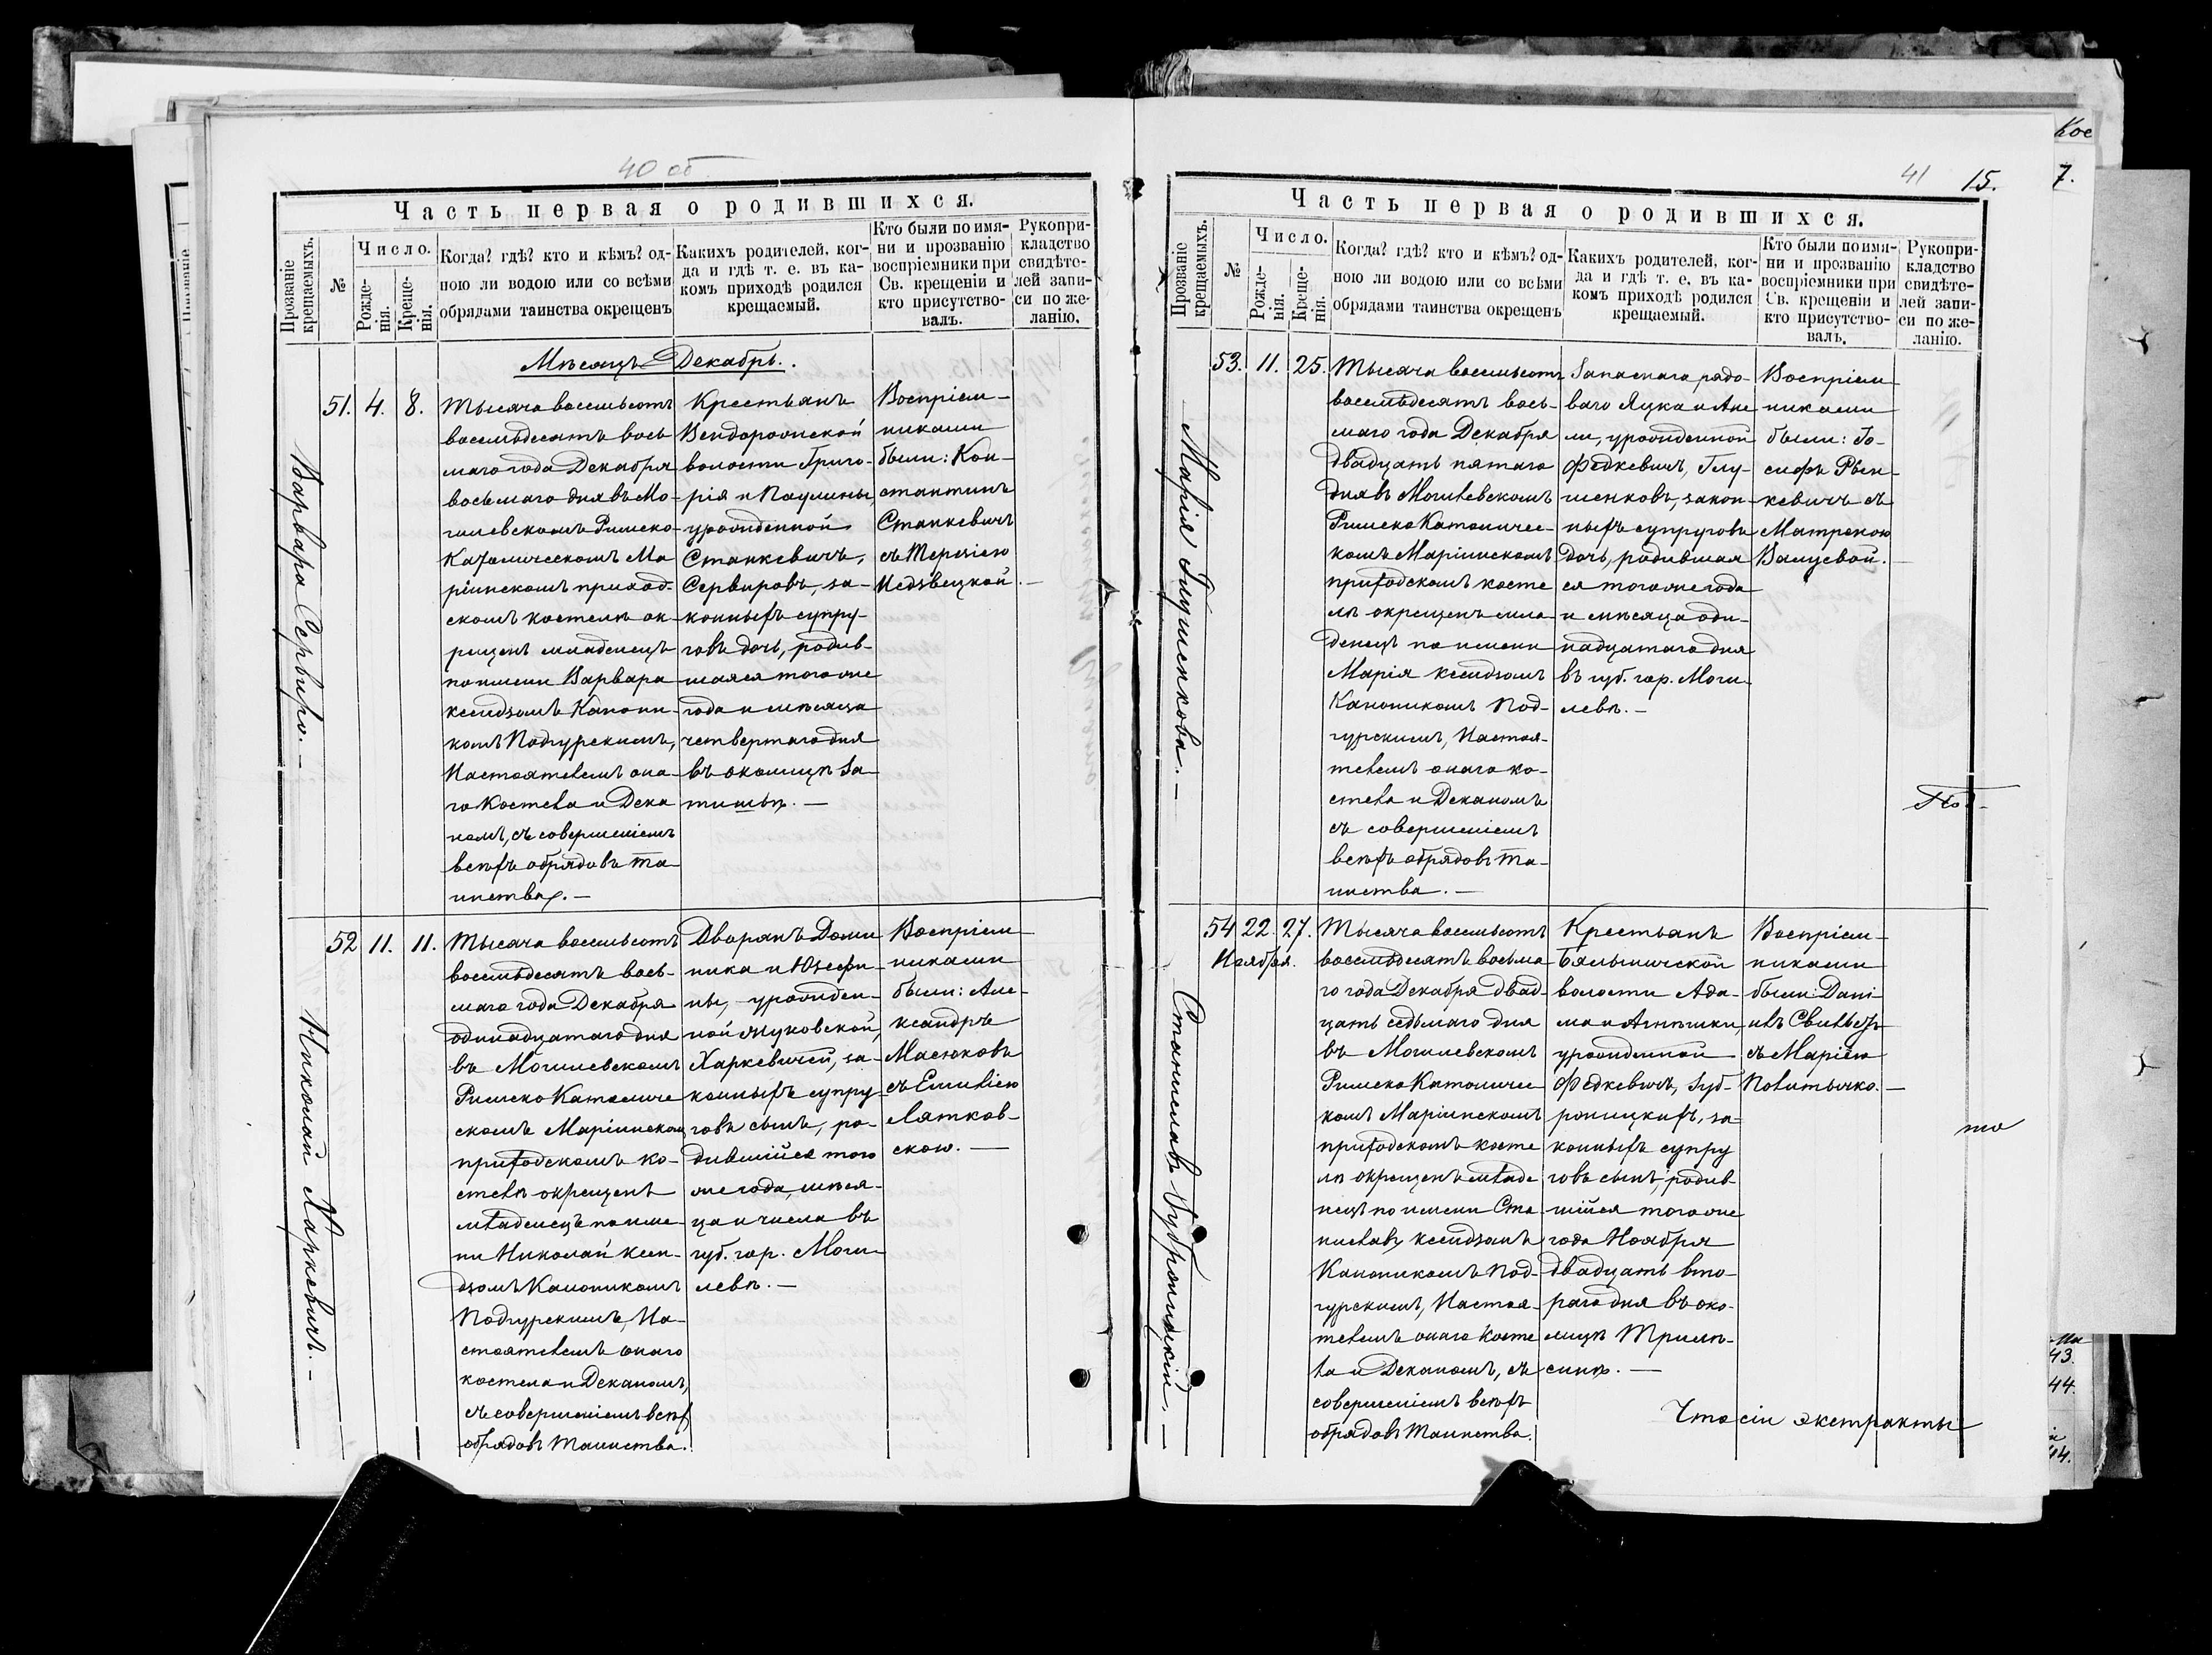 40 об
Часть первая о родившихся.
Прозваніе крещаемыхъ.
№
Число.
Рожде-
нія.
Креще-
нія.
Когда? гдѣ? кто и кѣмъ? од-
ною ли водою или со всѣми
обрядами таинства окрещенъ
Какихъ родителей, ког-
да и гдѣ т. е. въ ка-
комъ приходѣ родился
крещаемый.
Кто были по имя-
ни и прозванію
воспріемники при
Св. крещеніи и
кто присутство-
валъ.
Рукопри-
кладство
свидѣте-
лей запи-
си по же-
ланію.
Мѣсяцъ Декабрь.
Варвара Сервиро. —
51. 4. 8.
Тысяча восемьсотъ
восемьдесятъ вось
маго года Декабря
восьмаго дня въ Мо-
гилевскомъ Римско-
Католическомъ Ма
ріинскомъ приход-
скомъ костелѣ ок
рещенъ младенецъ
по имени Варвара
ксендзомъ Канони-
комъ Подгурскимъ,
Настоятелемъ она-
го Костела и Дека
номъ, съ совершеніемъ
всѣхъ обрядовъ та-
инства. —
Крестьянъ
Вендорожской
волости Григо-
рія и Паулины,
урожденной
Станкевичъ,
Сервировъ, за-
конныхъ супру-
говъ дочь, родив-
шаяся того же
года и мѣсяца
четвертаго дня
въ околицѣ За-
тишьѣ. —
Воспріем-
никами
были: Кон-
стантинъ
Станкевичъ
съ Терезіею
Недзвецкой. —
Николай Харкевичъ. —
52 11. 11.
Тысяча восемьсотъ
восемьдесятъ вось-
маго года Декабря
одинадцатаго дня
въ Могилевскомъ
Римско Католиче
скомъ Маріинскомъ
приходскомъ ко-
стелѣ окрещенъ
младенецъ по име-
ни Николай ксен-
дзомъ Каноникомъ
Подгурскимъ, На-
стоятелемъ онаго
костела и Деканомъ,
съ совершеніемъ всѣхъ
обрядовъ Таинства.
Дворянъ Доми
ника и Юзефи-
ны, урожден-
ной Жуковской,
Харкевичей, за-
конныхъ супру-
говъ сынъ, ро-
дившійся того
же года, мѣся-
ца и числа въ
губ. гор. Моги-
левѣ. —
Воспріем-
никами
были: Але-
ксандръ
Масюковъ
съ Емиліею
Лятков-
скою. —
41 15.
Часть первая о родившихся.
Прозваніе крещаемыхъ.
№
Число.
Рожде-
нія.
Креще-
нія.
Когда? гдѣ? кто и кѣмъ? од-
ною ли водою или со всѣми
обрядами таинства окрещенъ
Какихъ родителей, ког-
да и гдѣ т. е. въ ка-
комъ приходѣ родился
крещаемый.
Кто были по имя-
ни и прозванію
воспріемники при
Св. крещеніи и
кто присутство-
валъ.
Рукопри-
кладство
свидѣте-
лей запи-
си по же-
ланію.
Марія Глушенкова. —
53. 11. 25.
Тысяча восемьсотъ
восемьдесятъ вось-
маго года Декабря
двадцать пятаго
дня въ Могилевскомъ
Римско Католичес-
комъ Маріинскомъ
приходскомъ косте
лѣ окрещенъ мла-
денецъ по имени
Марія ксендзомъ
Каноникомъ Под-
гурскимъ, Настоя-
телемъ онаго ко-
стела и Деканомъ
съ совершеніемъ
всѣхъ обрядовъ та-
инства. —
Запаснаго рядо-
ваго Яцка и Ане
ли, урожденной
Федкевичъ, Глу-
шенковъ, закон-
ныхъ супруговъ
дочь, родившая
ся того же года
и мѣсяца оди-
надцатаго дня
въ губ. гор. Моги-
левѣ. —
Воспріем
никами
были: Іо-
сифъ Рын-
кевичъ съ
Матреною
54 22. 27.
Ноября.
Тысяча восемьсотъ
восемьдесятъ восьма
го года Декабря двад-
цать седьмаго дня
въ Могилевскомъ
Римско Католичес
комъ Маріинскомъ
приходскомъ косте
лѣ окрещенъ младе
нецъ по имени Ста
ниславъ ксендзомъ
Каноникомъ Под-
гурскимъ, Настоя-
телемъ онаго косте
ла и Деканомъ, съ
совершеніемъ всѣхъ
обрядовъ Таинства.
Крестьянъ
Бялыничской
волости Ада-
ма и Агнѣшки,
урожденной
Федкевичъ, Зуб-
роницкихъ, за-
конныхъ супру
говъ сынъ, родив-
шійся того же
года Ноября
двадцать вто-
раго дня въ око-
лицѣ
Воспріем-
никами
были: Дані-
съ Маріею
Что сіи экстракты
то
Кое
7.
43.
44.